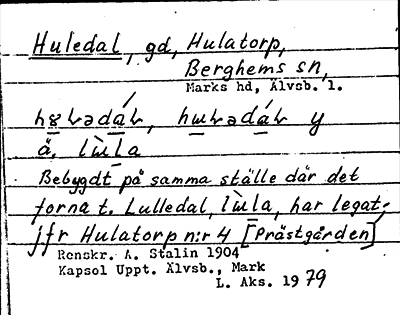 Huledal, gd, Hulatorp,
Berghems sn,
Marks hd, Älvsb. l.
y
ä.
Bebyggt på samma ställe där det
forna t. Lulledal, har legat,
jfr Hulatorp n:r 4 [Prästgården]
Renskr. A. Stalin 1904
Kapsol Uppt. Älvsb., Mark
L. Aks. 1979